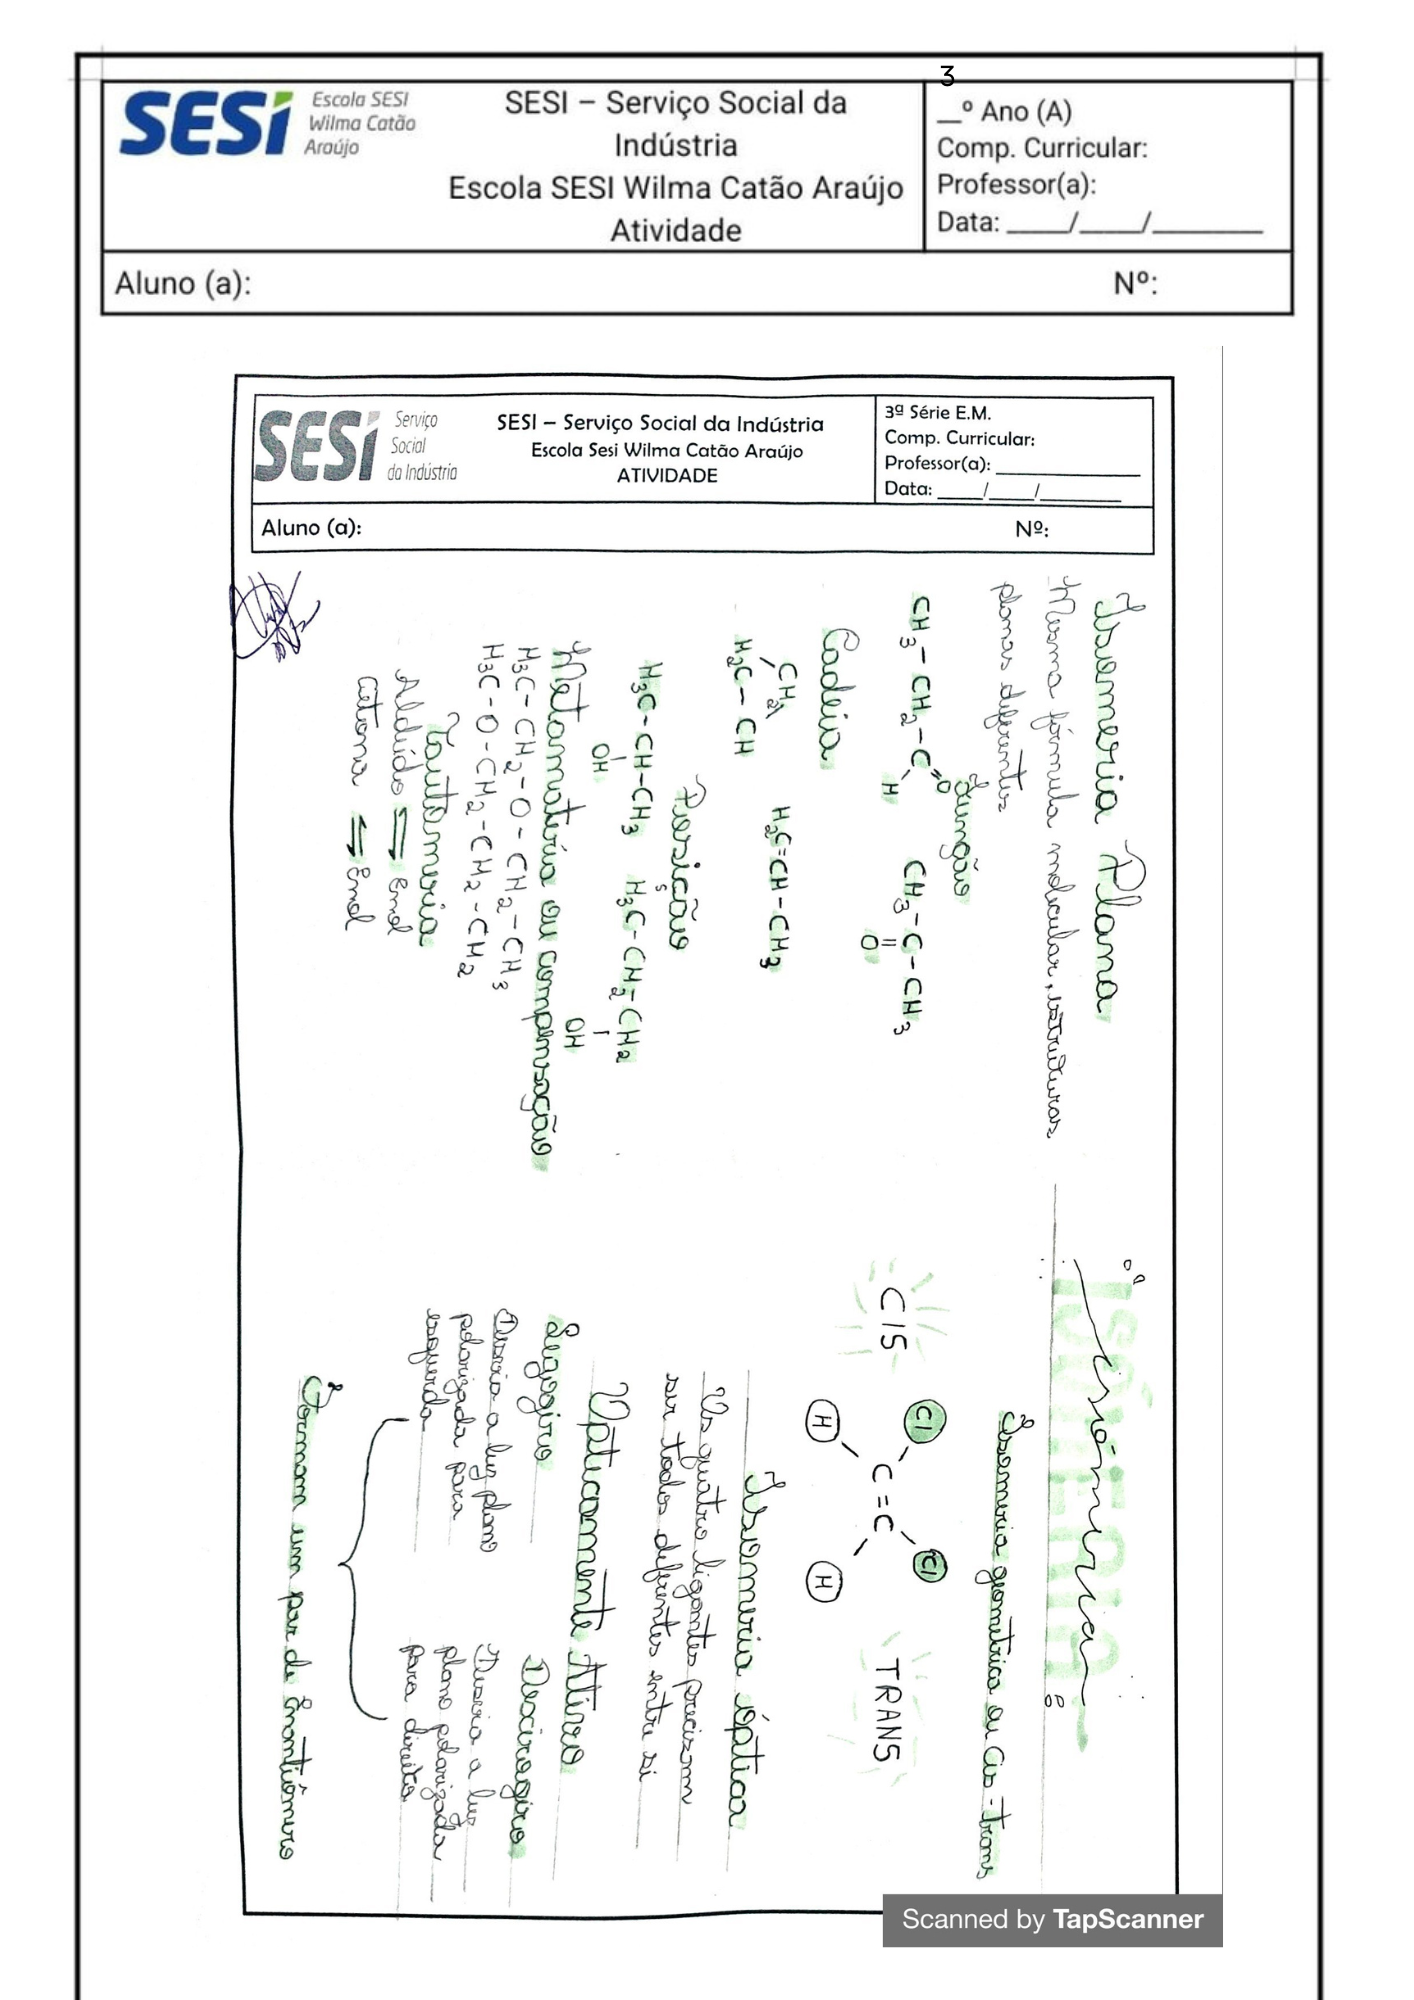 3
SESI Escola SESI
Wilma Catão
Araújo
SESI – Serviço Social da
Indústria
Escola SESI Wilma Catão Araújo
Atividade
__º Ano (A)
Comp. Curricular:
Professor(a):
Data: ____/____/_______
Aluno (a): Nº:
SESI Serviço
Social
da Indústria
SESI – Serviço Social da Indústria
Escola Sesi Wilma Catão Araújo
ATIVIDADE
3ª Série E.M.
Comp. Curricular:
Professor(a): ______________
Data: ____/____/________
Aluno (a): Nº:
Isomeria Plana
Mesma fórmula molecular, estruturas
planas diferentes
Função
CH3 – CH2 – C
O
H
CH3 – C – CH3
O
Cadeia
CH2
H2C – CH
H2C = CH – CH3
Posição
H3C – CH – CH3
OH
H3C – CH2 – CH2
OH
Metamateria ou compensação
H3C – CH2 – O – CH2 – CH3
H3C – O – CH2 – CH2 – CH2
Tautomeria
Aldeído ⇌ Enol
Cetona ⇌ Enol
ISOMERIA
Isomeria
Isomeria geometrica ou Cis-trans
CIS
Cl Cl
C = C
H H
TRANS
Isomeria óptica
Os quatro ligantes precisam
ser todos diferentes entre si
Opticamente Ativo
Levogiro
Desvia a luz plano
polarizada para
esquerda
Dextrogiro
Desvia a luz
plano polarizada
para direita
Formam um par de Enantiômero
Scanned by TapScanner